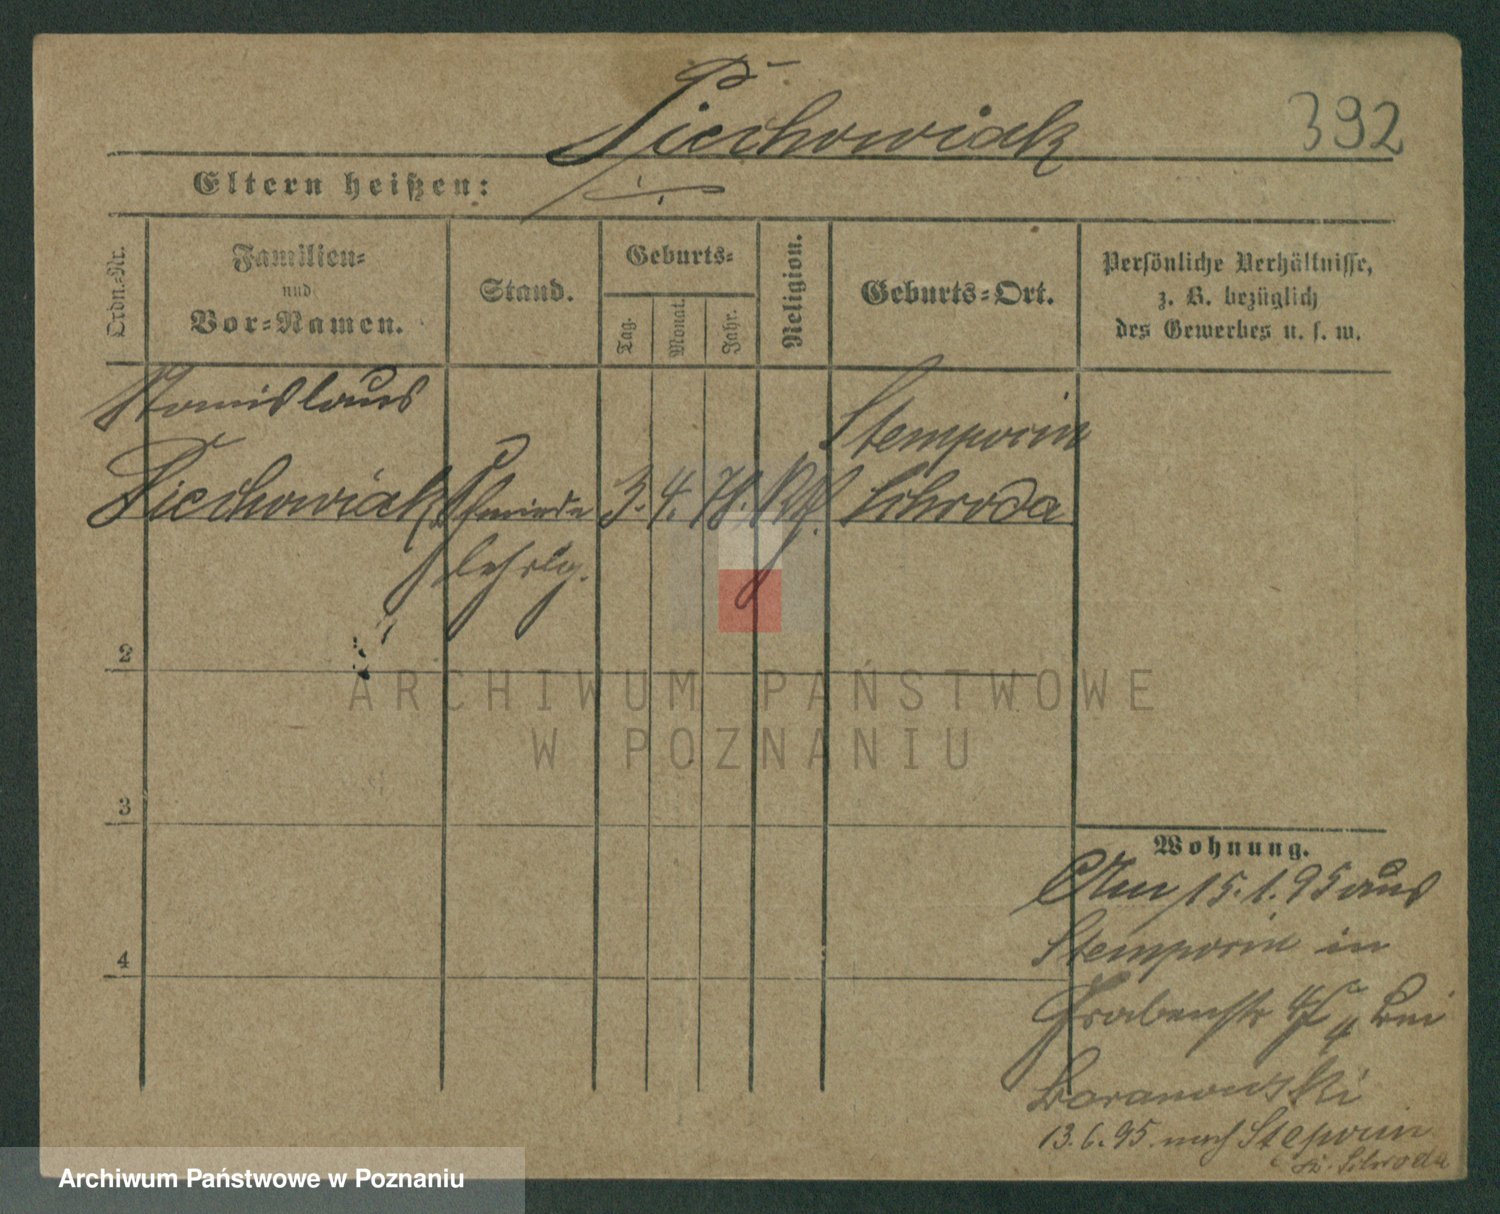 Piechowiak
392
Eltern heißen:
Ordn.-Nr.
Familien-
und
Vor-Namen.
Stand.
Geburts-
Tag.
Monat.
Jahr.
Religion.
Geburts-Ort.
Persönliche Verhältnisse,
z. B. bezüglich
des Gewerbes u. s. w.
Stanislaus
Piechowiak
Schmiede
lehrlg.
3. 4. 78.
Stemporin
Schroda
2
ARCHIWUM PAŃSTWOWE
W POZNANIU
3
4
Wohnung.
Am 15.1.95 aus
Stemporin in
Grabenstr bei
Baranowski
13.6.95. nach Steporin
Kr. Schroda
Archiwum Państwowe w Poznaniu